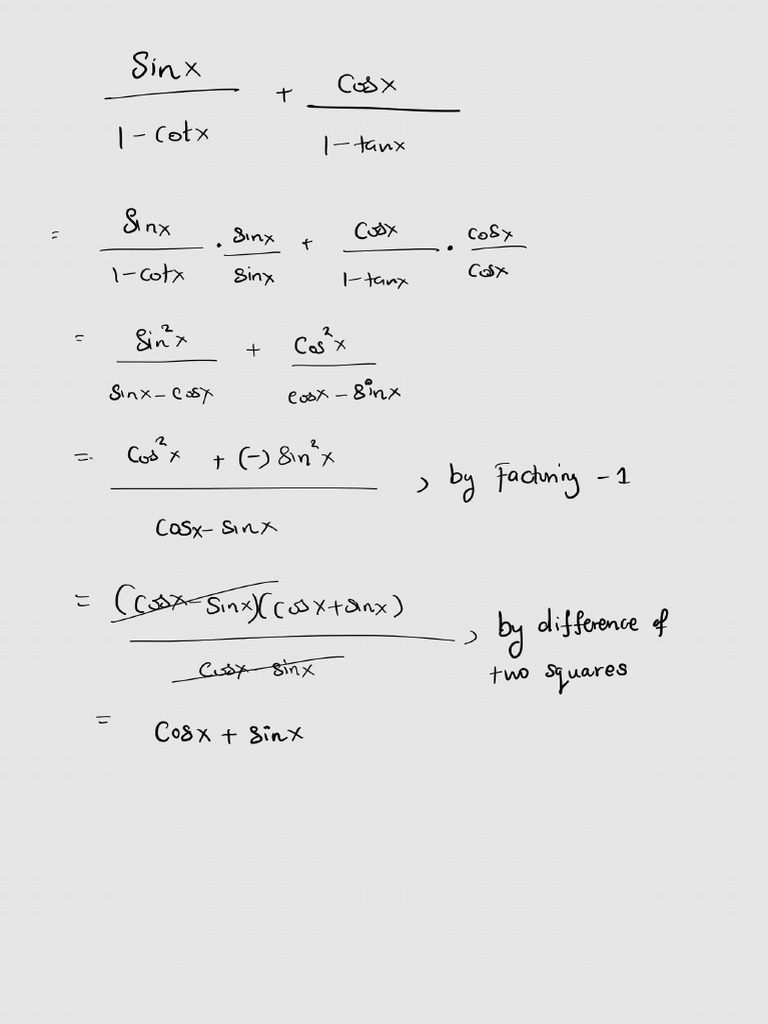 Sinx / 1 - cotx + Cosx / 1 - tanx
= Sinx / 1 - cotx · Sinx / sinx + Cosx / 1 - tanx · cosx / cosx
= Sin²x / sinx - cosx + Cos²x / cosx - sinx
= Cos²x + (-) Sin²x / Cosx - sinx , by Factoring -1
= (cosx - sinx)(cosx + sinx) / cosx - sinx , by difference of
two squares
= Cosx + sinx